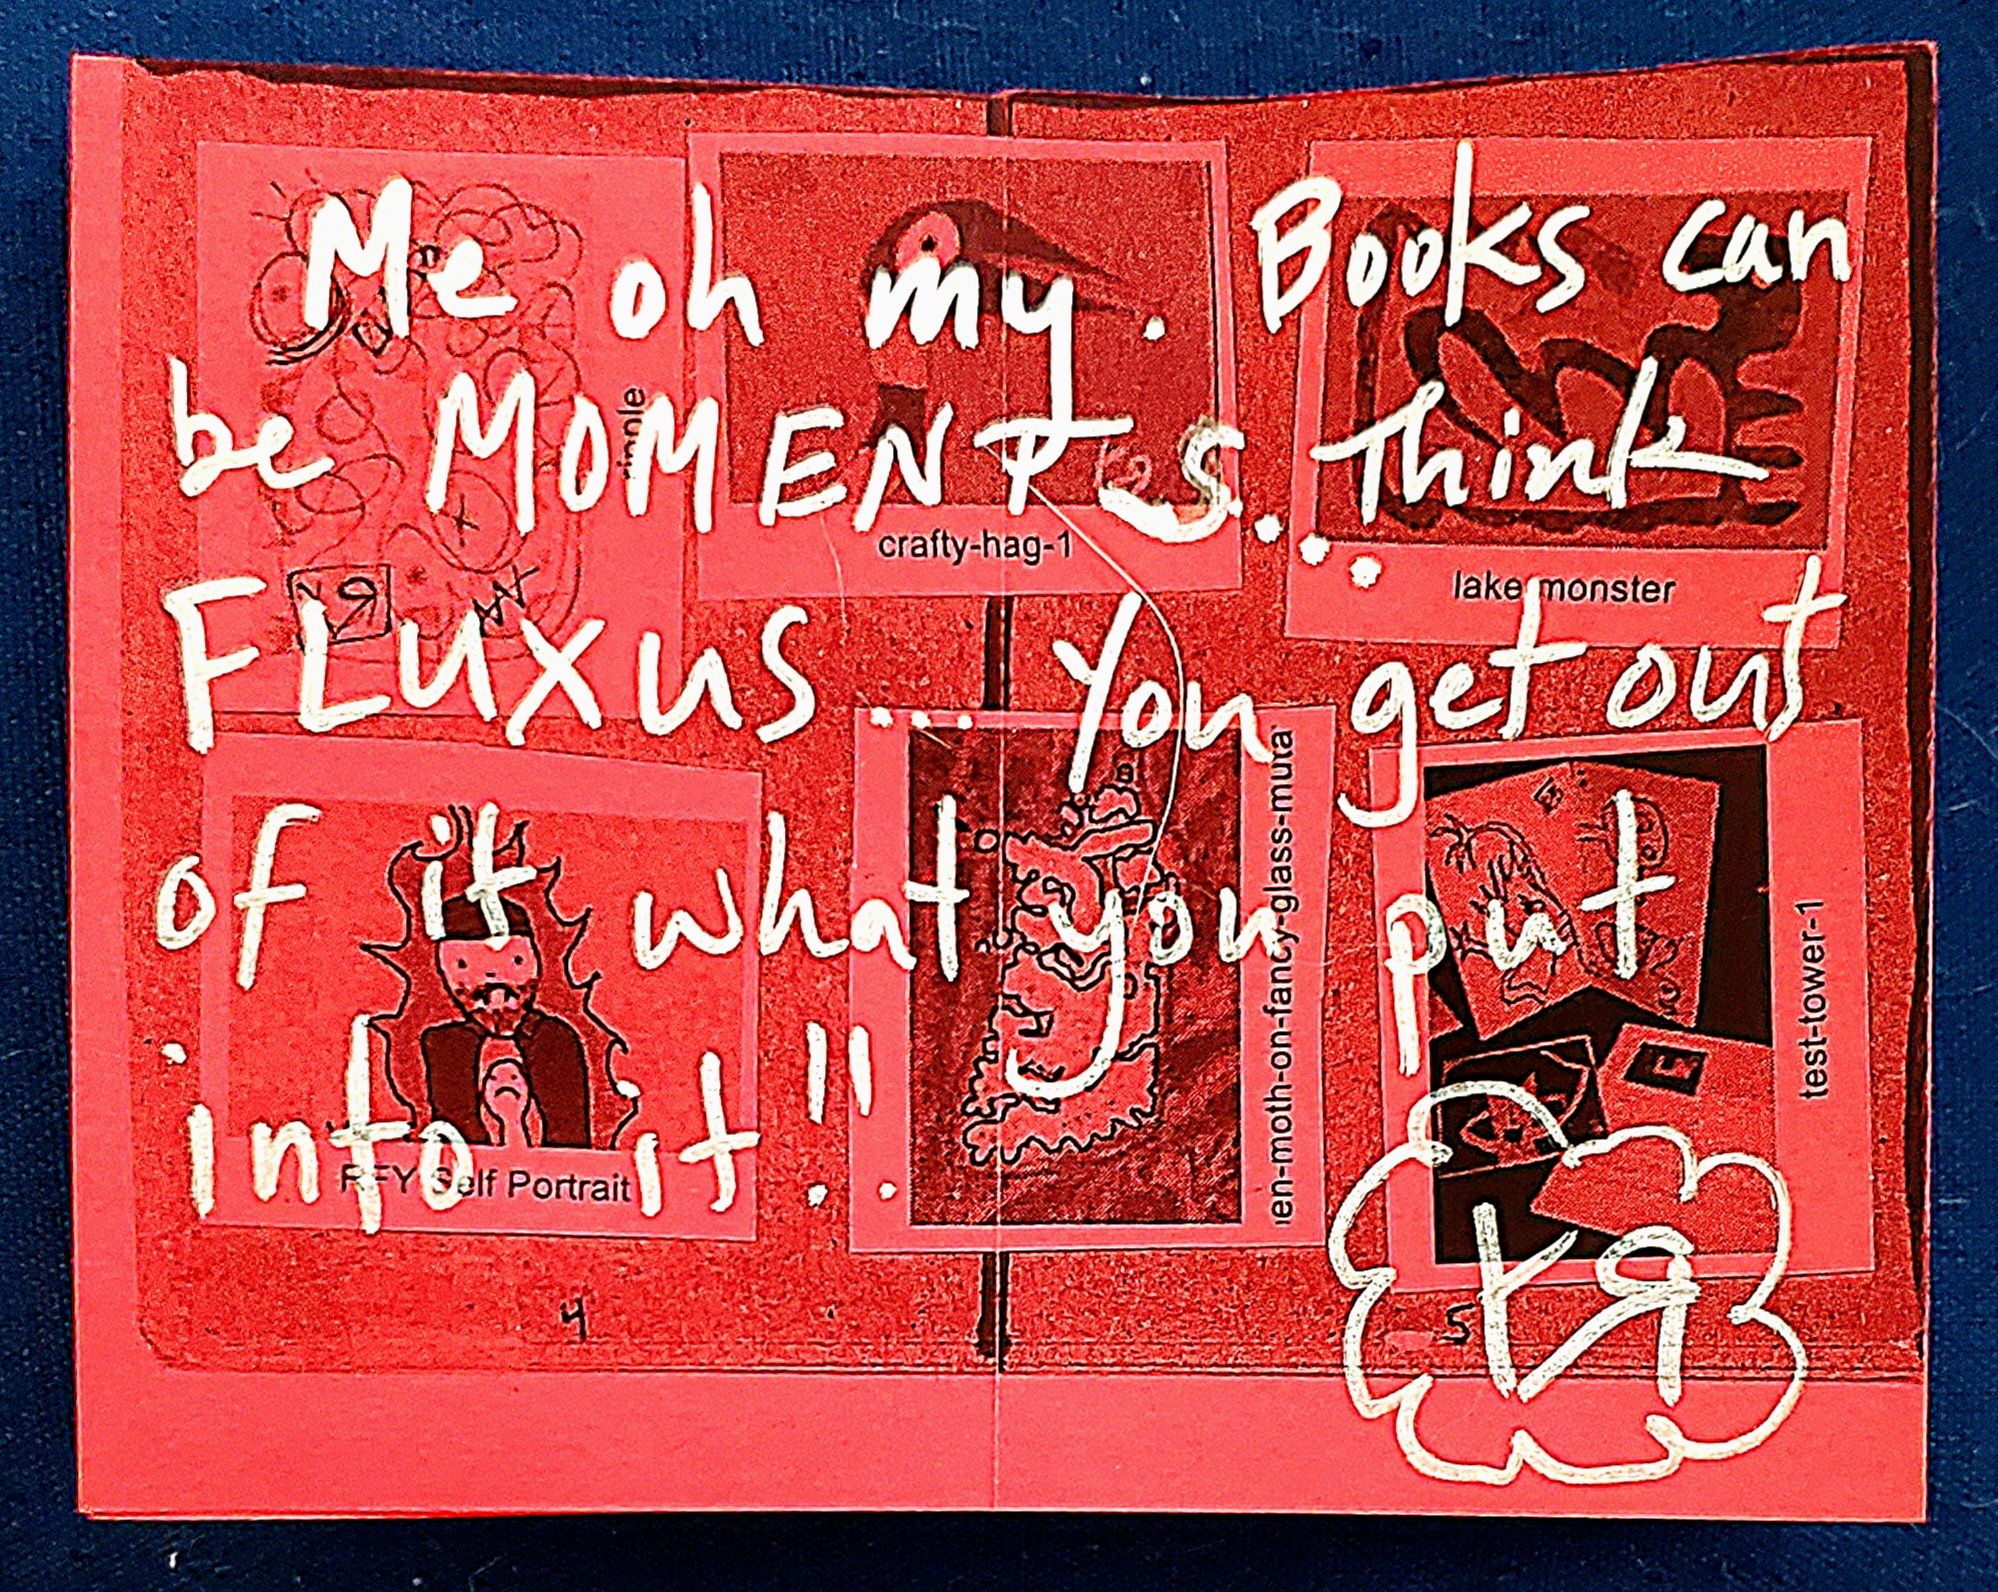 Me oh my. Books can
be MOMENTS... Think
FLUXUS... You get out
of it what you put
into it!!
crafty-hag-1
lake monster
RFY Self Portrait
en-moth-on-fancy-glass-mua
test-tower-1
4
5